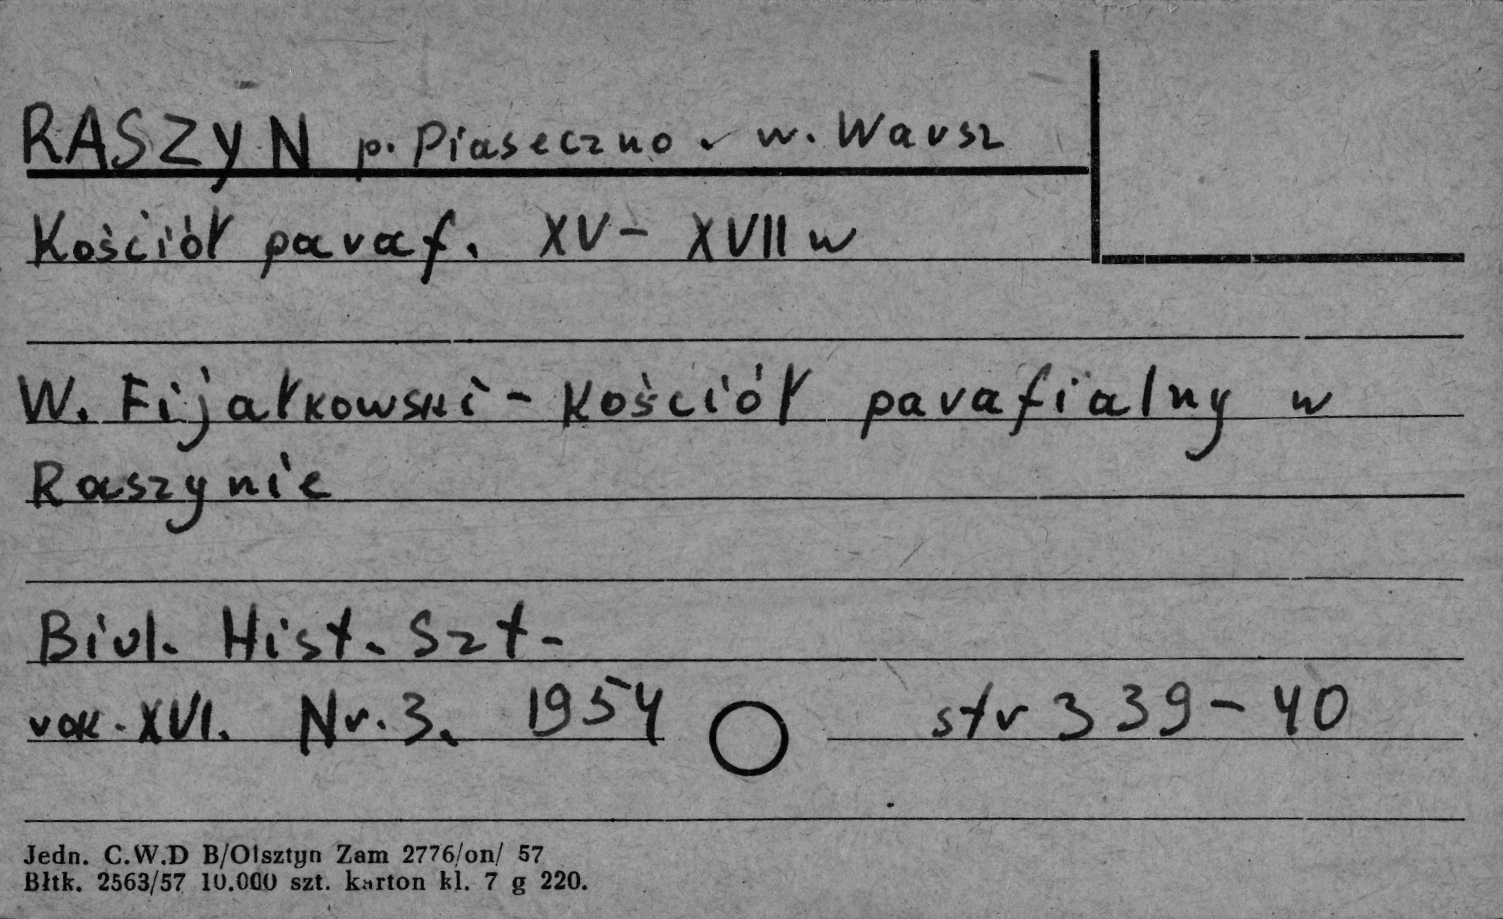 RASZYN p. Piaseczno. w. Warsz
Kościół paraf. XV - XVII w
W. Fijałkowski - Kościół parafialny w
Raszynie
Biul. Hist. Szt.
rok. XVI. Nr. 3. 1954 str 339-40
Jedn. C.W.D B/Olsztyn Zam 2776/on/ 57
Błtk. 2563/57 10.000 szt. karton kl. 7 g 220.